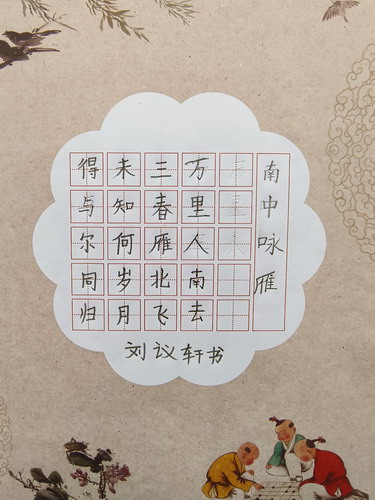 南中咏雁
万里人南去
三春雁北飞
未知何岁月
得与尔同归
刘议轩书